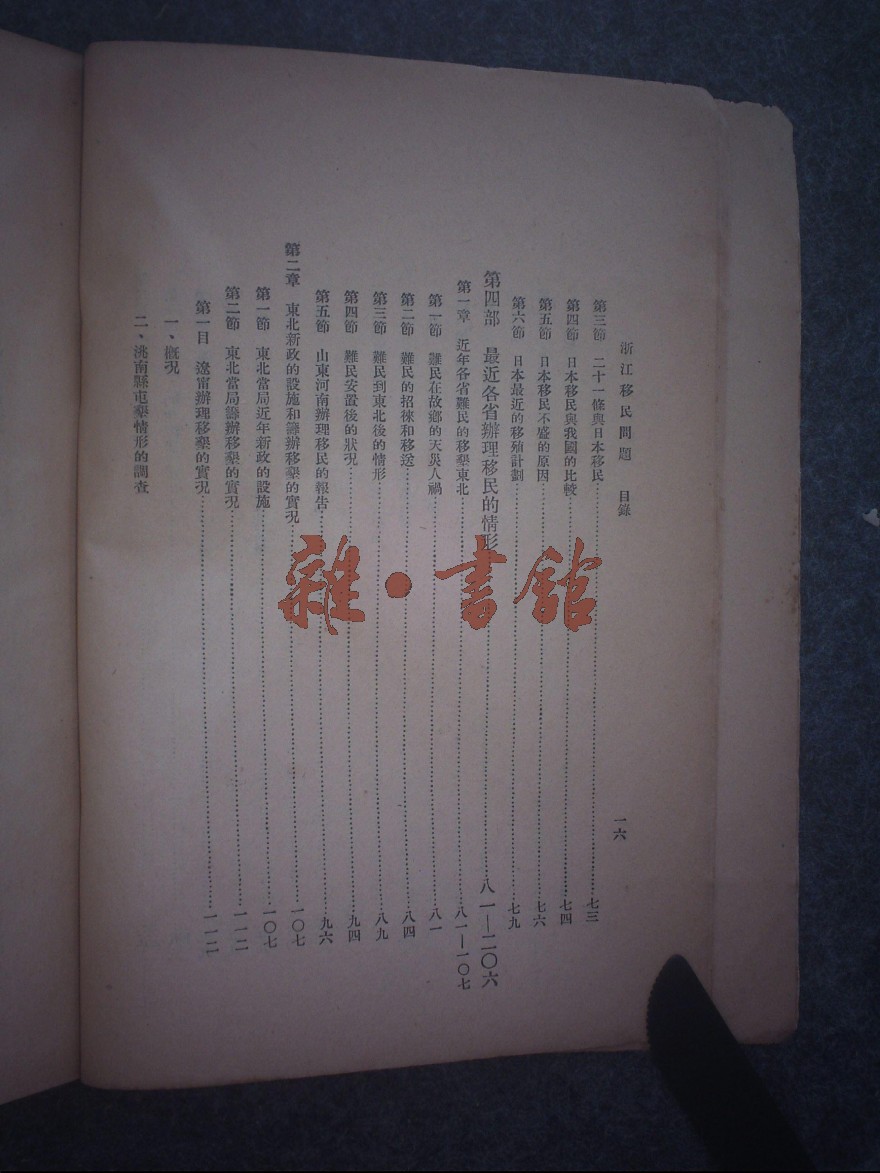 浙江移民問題 目錄 一六
第三節 二十一條與日本移民……七三
第四節 日本移民與我國的比較……七四
第五節 日本移民不盛的原因……七六
第六節 日本最近的移殖計劃……七九
第四部 最近各省辦理移民的情形……八一—二〇六
第一章 近年各省難民的移墾東北……八一—一〇七
第一節 難民在故鄉的天災人禍……八一
第二節 難民的招徠和移送……八四
第三節 難民到東北後的情形……八九
第四節 難民安置後的狀況……九四
第五節 山東河南辦理移民的報告……九六
第二章 東北新政的設施和籌辦移墾的實況……一〇七
第一節 東北當局近年新政的設施……一〇七
第二節 東北當局籌辦移墾的實況……一一二
第一目 遼甯辦理移墾的實況……一一二
一、概況
二、洮南縣屯墾情形的調查
雜·書館